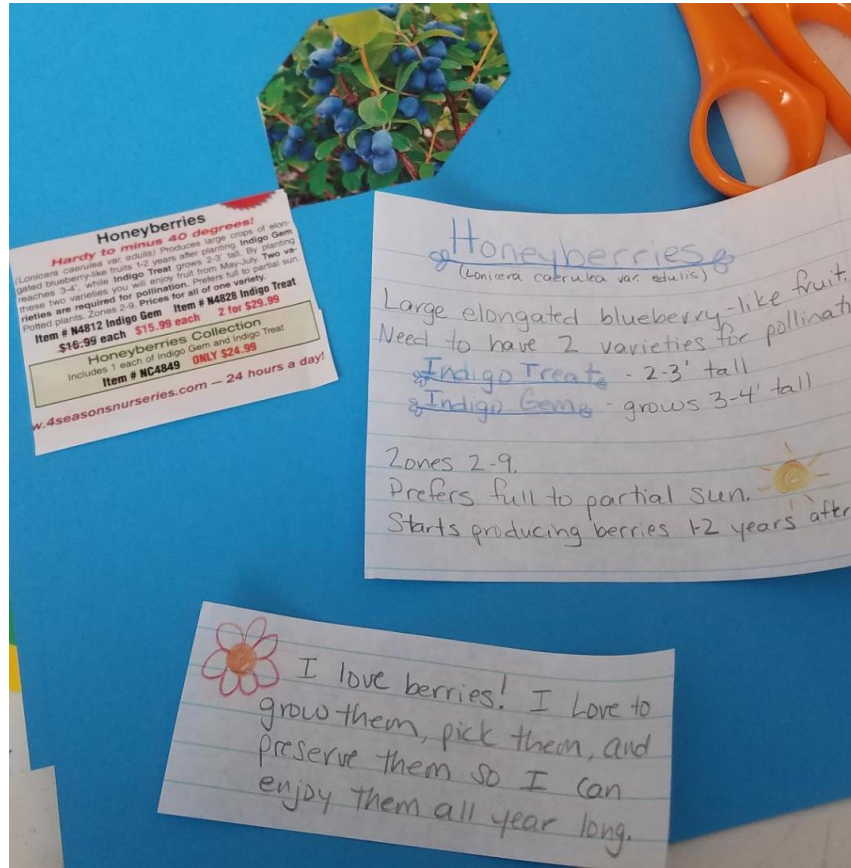 Honeyberries
Hardy to minus 40 degrees!
(Lonicera caerulea var. edulis) Produces large crops of elon-
gated blueberry-like fruits 1-2 years after planting. Indigo Gem
reaches 3-4', while Indigo Treat grows 2-3' tall. By planting
these two varieties you will enjoy fruit from May-July. Two va-
rieties are required for pollination. Prefers full to partial sun.
Potted plants. Zones 2-9. Prices for all of one variety.
Item # N4812 Indigo Gem Item # N4828 Indigo Treat
$16.99 each $15.99 each 2 for $29.99
Honeyberries Collection
Includes 1 each of Indigo Gem and Indigo Treat
Item # NC4849 ONLY $24.99
w.4seasonsnurseries.com — 24 hours a day!
Honeyberries
(Lonicera caerulea var. edulis)
Large elongated blueberry-like fruit.
Need to have 2 varieties for pollinat
Indigo Treat - 2-3' tall
Indigo Gem - grows 3-4' tall
Zones 2-9.
Prefers full to partial sun.
Starts producing berries 1-2 years after
I love berries! I Love to
grow them, pick them, and
preserve them so I can
enjoy them all year long.